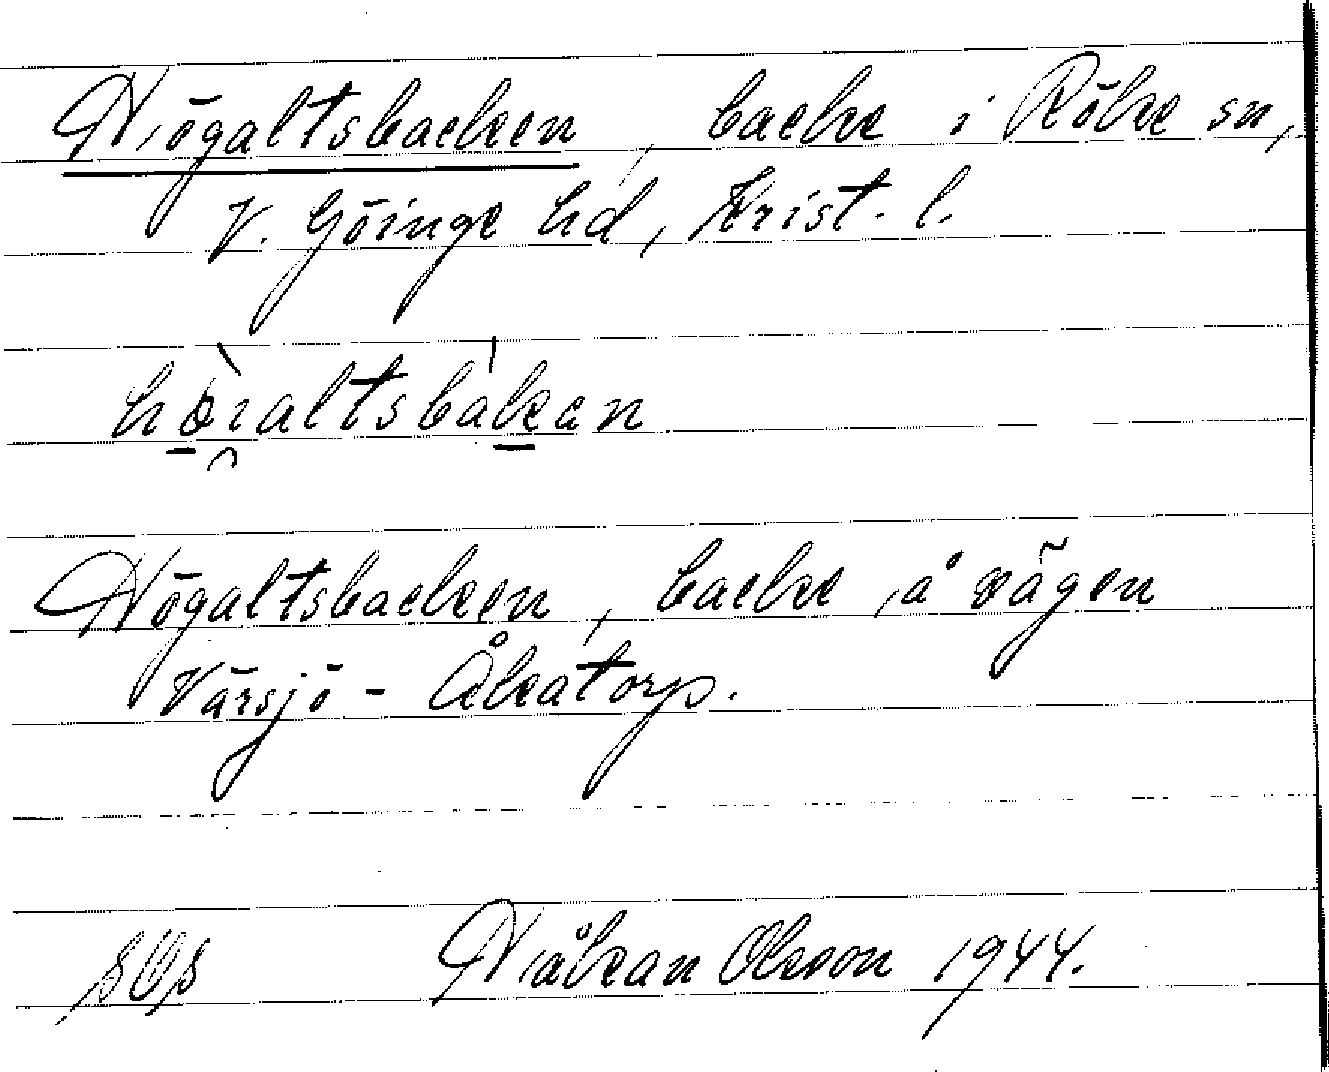 Högaltsbacken, backe i Röke sn,
V. Göinge hd, Krist. l.
hø̀ıaltsbákan
Högaltsbacken, backe å vägen
Värsjö - Åkatorp.
Håkan Olsson 1944.